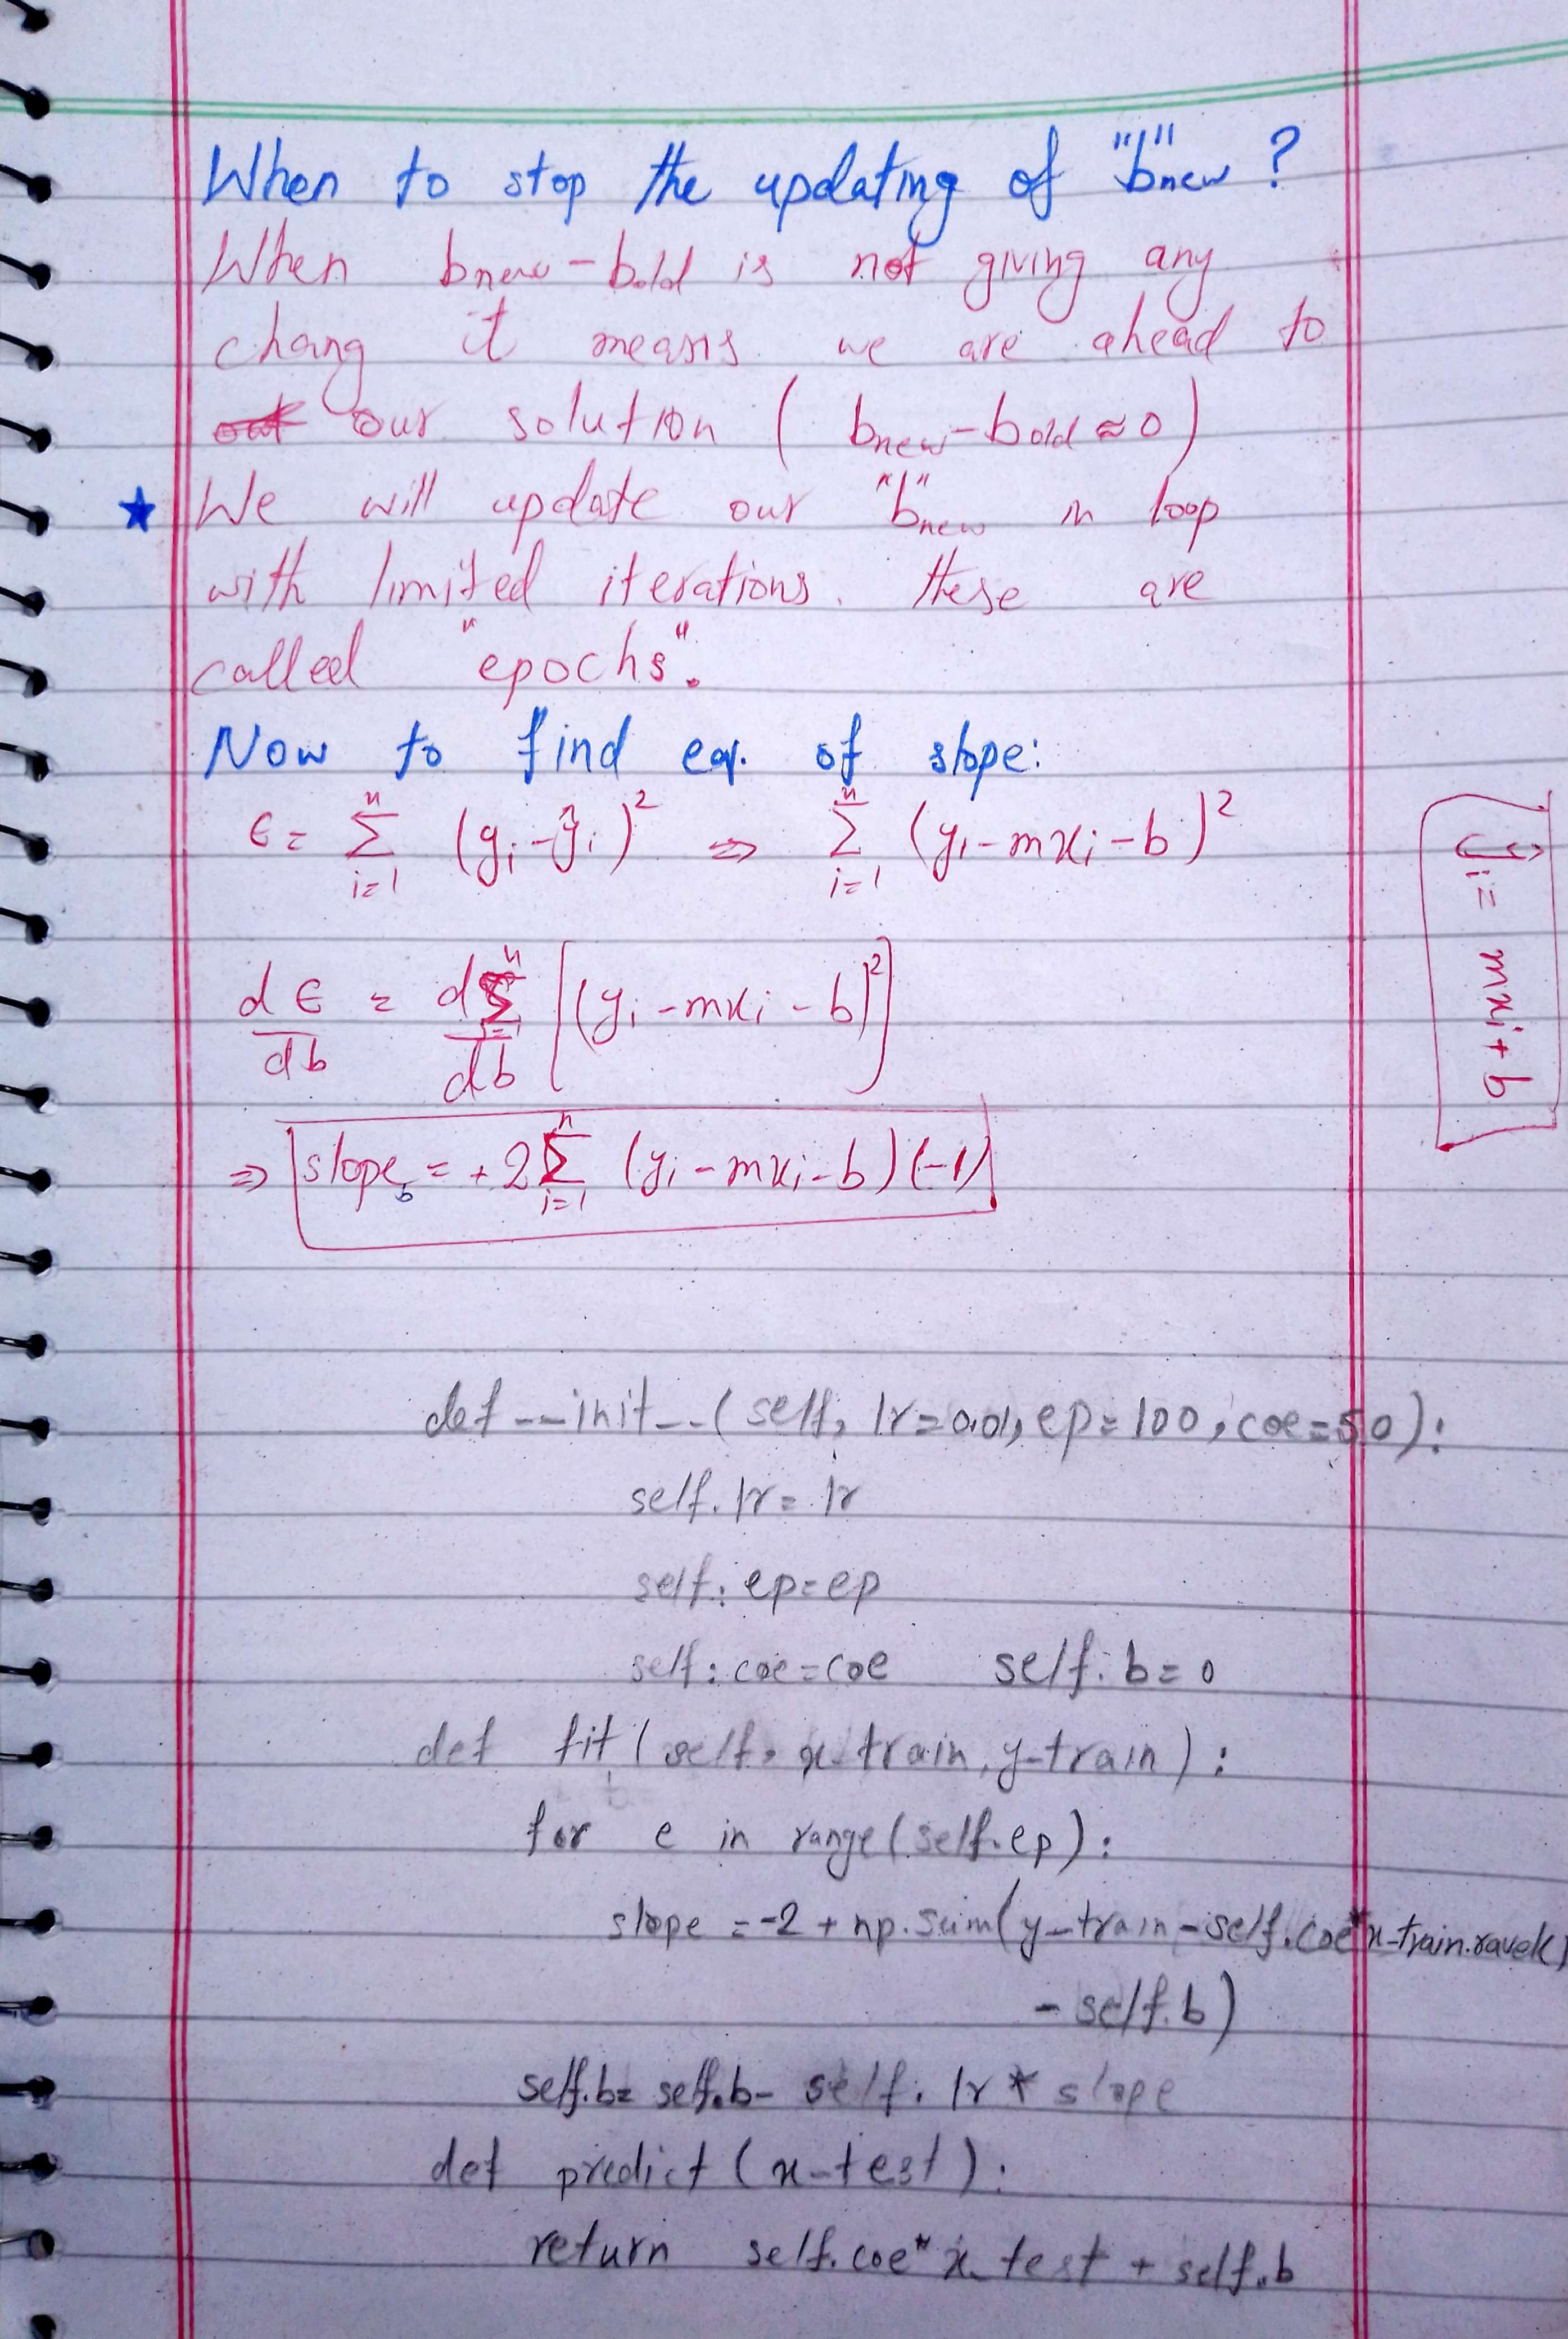 When to stop the updating of "b"new ?
When bnew - bold is not giving any
chang it means we are ahead to
our solution ( bnew - bold ≈ 0 )
★ We will update our "b"new in loop
with limited iterations. these are
called "epochs".
Now to find eq. of slope:
ϵ = Σ_{i=1}^{n} (yi - ŷi)² ⇒ Σ_{i=1}^{n} (yi - mxi - b)²
ŷi = mxi + b
dϵ/db = d/db Σ_{i=1}^{n} [(yi - mxi - b)²]
⇒ slope_b = + 2 Σ_{i=1}^{n} (yi - mxi - b) (-1)
def __init__(self, lr=0.01, ep=100, coe=50):
self.lr = lr
self.ep=ep
self.coe=coe self.b=0
def fit(self, x_train, y_train):
for e in range(self.ep):
slope = -2 + np.sum(y_train - self.coe*x_train.ravel()
- self.b)
self.b= self.b- self.lr * slope
def predict (x_test):
return self.coe* x_test + self.b